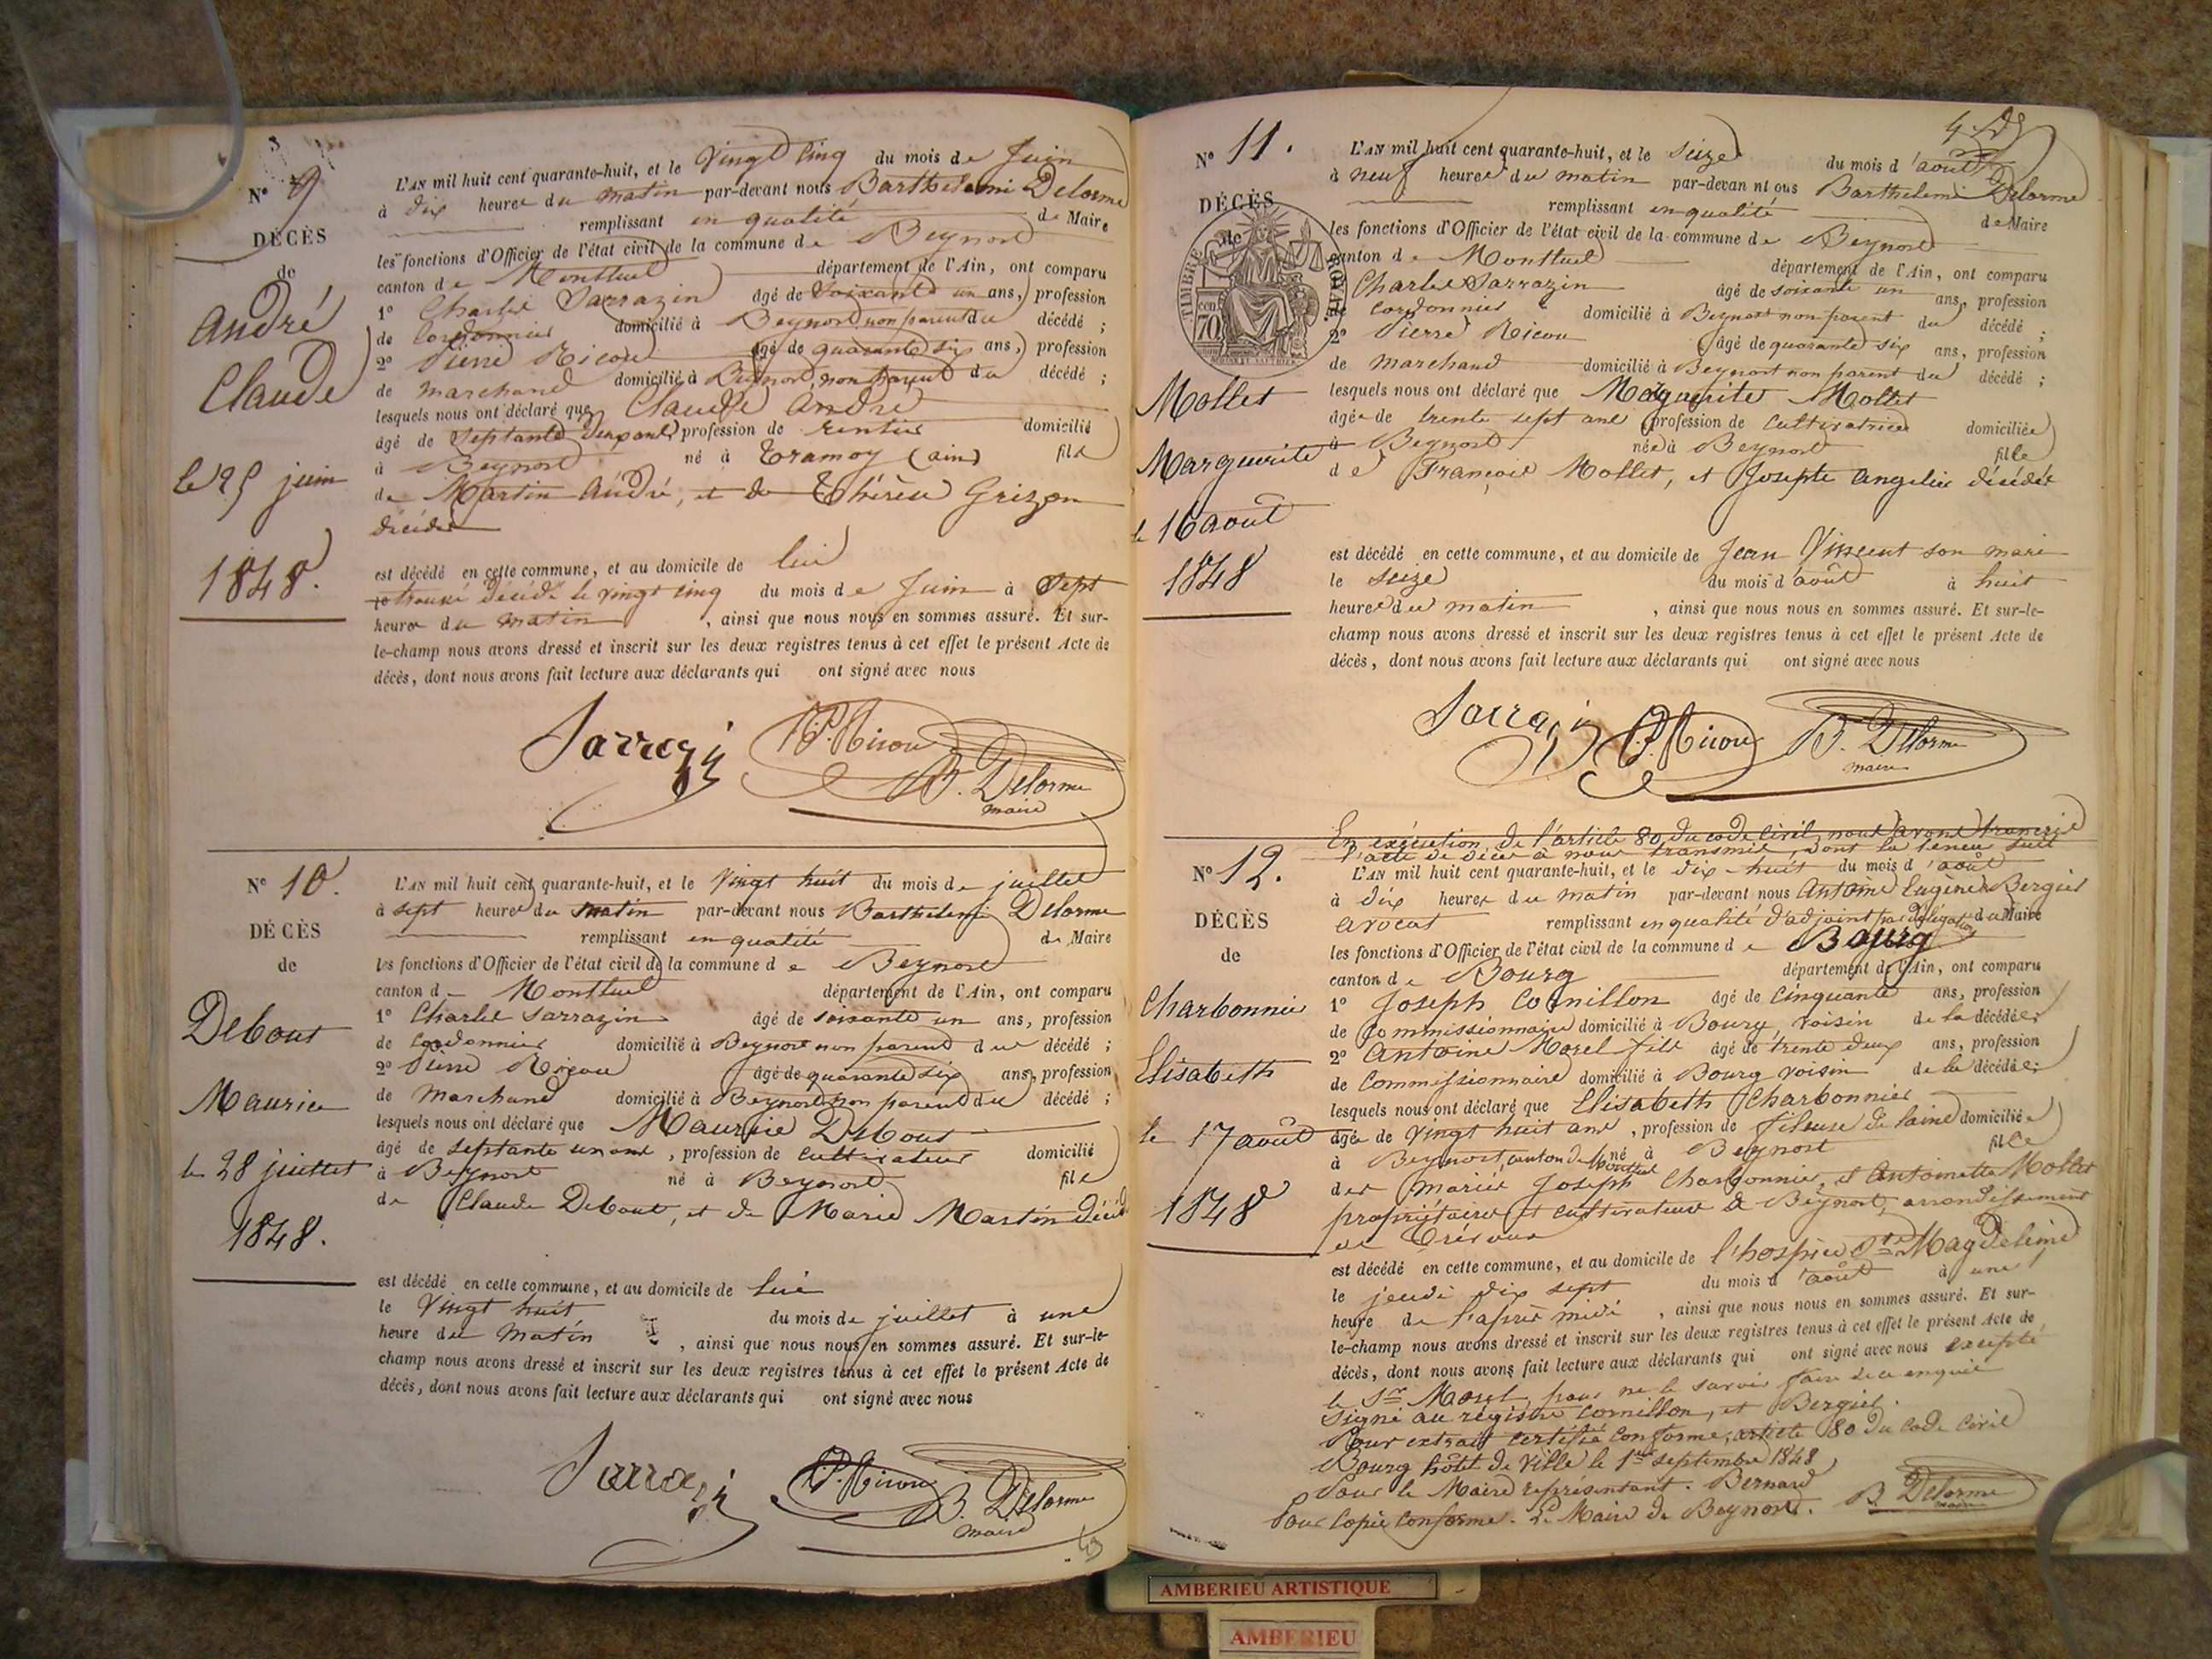 N° 9
DÉCÈS
de
André
Claude
le 25 juin
1848.
L'AN mil huit cent quarante-huit, et le vingt cinq du mois de Juin
à dix heures du matin par-devant nous Barthelemi Delorme
remplissant en qualité de Maire
les fonctions d'Officier de l'état civil de la commune de Beynost
canton de Montluel département de l'Ain, ont comparu
1° Charles Sarrazin âgé de soixante un ans, profession
de Cordonnier domicilié à Beynost non parent du décédé ;
2° Pierre Nicou âgé de quarante six ans, profession
de marchand domicilié à Beynost, non parent du décédé ;
lesquels nous ont déclaré que Claude André
âgé de septante deux ans profession de rentier domicilié
à Beynost né à Tramoy (ain) fils
de Martin André, et de Thérèse Grizon
décédés
est décédé en cette commune, et au domicile de lui
trouvé décédé le vingt cinq du mois de Juin à sept
heures du matin , ainsi que nous nous en sommes assuré. Et sur-
le-champ nous avons dressé et inscrit sur les deux registres tenus à cet effet le présent Acte de
décès, dont nous avons fait lecture aux déclarants qui ont signé avec nous
Sarrazin P. Nicou
B. Delorme
maire
N° 10.
DÉCÈS
de
Debout
Maurice
le 28 juillet
1848.
L'AN mil huit cent quarante-huit, et le vingt huit du mois de juillet
à sept heures du matin par-devant nous Barthelemi Delorme
remplissant en qualité de Maire
les fonctions d'Officier de l'état civil de la commune de Beynost
canton de Montluel département de l'Ain, ont comparu
1° Charles Sarrazin âgé de soixante un ans, profession
de cordonnier domicilié à Beynost non parent du décédé ;
2° Pierre Nicou âgé de quarante six ans, profession
de marchand domicilié à Beynost non parent du décédé ;
lesquels nous ont déclaré que Maurice Debout
âgé de septante un ans , profession de cultivateur domicilié
à Beynost né à Beynost fils
de Claude Debout, et de Marie Martin décéd
est décédé en cette commune, et au domicile de lui
le vingt huit du mois de juillet à une
heure du matin , ainsi que nous nous en sommes assuré. Et sur-le-
champ nous avons dressé et inscrit sur les deux registres tenus à cet effet le présent Acte de
décès, dont nous avons fait lecture aux déclarants qui ont signé avec nous
Sarrazin P. Nicou
B. Delorme
maire
N° 11.
DÉCÈS
de
TIMBRE ROYAL
70
Mollet
Marguerite
le 16 août
1848
L'AN mil huit cent quarante-huit, et le seize du mois d'août
à neuf heures du matin par-devan nt ous Barthelemi Delorme
remplissant en qualité de Maire
les fonctions d'Officier de l'état civil de la commune de Beynost
canton de Montluel département de l'Ain, ont comparu
Charles Sarrazin âgé de soixante un ans, profession
de cordonnier domicilié à Beynost non parent du décédé ;
2° Pierre Nicou âgé de quarante six ans, profession
de marchand domicilié à Beynost non parent du décédé ;
lesquels nous ont déclaré que Marguerite Mollet
âgée de trente sept ans profession de cultivatrice domiciliée
à Beynost née à Beynost fille
de François Mollet, et Josepte Angelier décédés
est décédé en cette commune, et au domicile de Jean Vincent son mari
le seize du mois d'août à huit
heures du matin , ainsi que nous nous en sommes assuré. Et sur-le-
champ nous avons dressé et inscrit sur les deux registres tenus à cet effet le présent Acte de
décès, dont nous avons fait lecture aux déclarants qui ont signé avec nous
Sarrazin P. Nicou B. Delorme
maire
N° 12.
DÉCÈS
de
Charbonnier
Elisabeth
le 17 août
1848
En exécution de l'article 80 du code civil, nous avons transcrit
l'acte de décès à nous transmis, dont la teneur suit
L'AN mil huit cent quarante-huit, et le dix-huit du mois d'août
à dix heures du matin par-devant nous Antoine Eugène Bergier
avocat remplissant en qualité d'adjoint par délégation du Maire
les fonctions d'Officier de l'état civil de la commune de Bourg
canton de Bourg département de l'Ain, ont comparu
1° Joseph Cornillon âgé de cinquante ans, profession
de Commissionnaire domicilié à Bourg, voisin de la décédée;
2° Antoine Morel fils âgé de trente deux ans, profession
de Commissionnaire domicilié à Bourg voisin de la décédée;
lesquels nous ont déclaré que Elisabeth Charbonnier
âgée de vingt huit ans , profession de fileuse de laine domiciliée
à Beynost, canton de Montluel né à Beynost fille
des mariés Joseph Charbonnier, et Antoinette Mollet
propriétaires et cultivateurs à Beynost, arrondissement
de Trévoux
est décédé en cette commune, et au domicile de l'hospice Ste Magdeleine
le jeudi dix sept du mois d'août à une
heure de l'après midi , ainsi que nous nous en sommes assuré. Et sur-
le-champ nous avons dressé et inscrit sur les deux registres tenus à cet effet le présent Acte de
décès, dont nous avons fait lecture aux déclarants qui ont signé avec nous excepté
le Sr Morel, pour ne le savoir faire de ce enquis
signé au registre Cornillon, et Bergier.
Pour extrait certifié conforme, article 80 du code civil
Bourg hôtel de Ville le 1er septembre 1848
Pour le Maire représentant. Bernard
Pour Copie Conforme. Le Maire de Beynost. B. Delorme
maire
AMBERIEU ARTISTIQUE
AMBERIEU